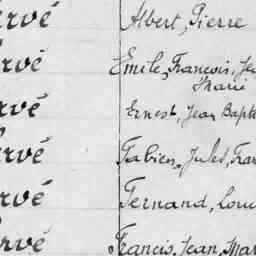 rvé Albert, Pierre
rvé Emile, François, Je
Marie
rvé Ernest, Jean Bapt
rvé Fabien, Jules, Fra
rvé Fernand, Loui
rvé Francis, Jean, Mar